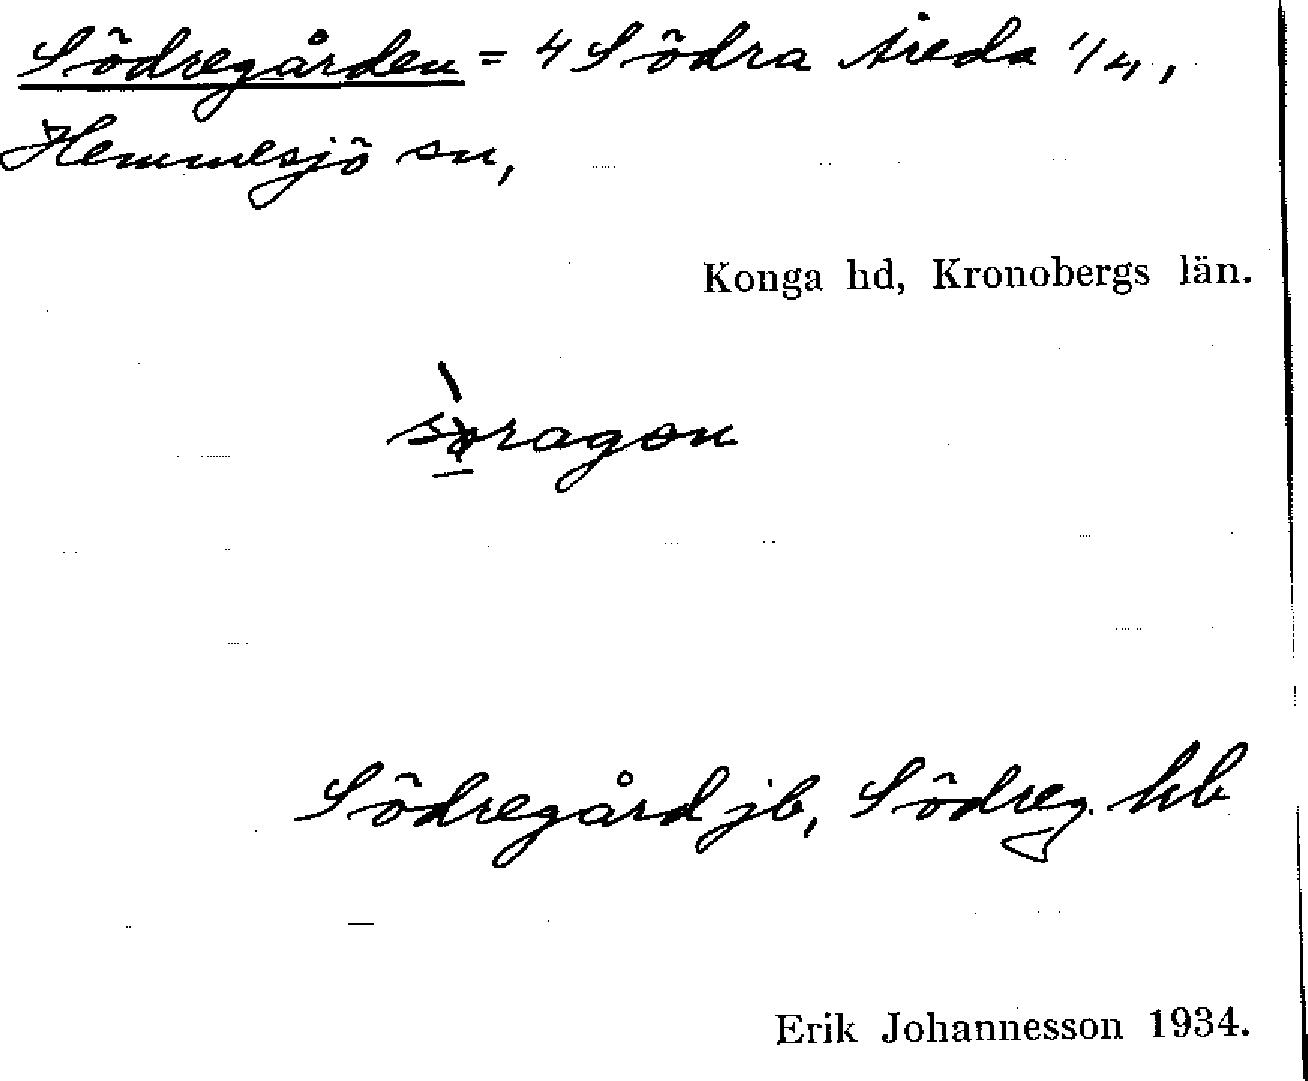 Södregården = 4 Södra Åreda 1/4,
Hemmesjö sn,
Konga hd, Kronobergs län.
Södregård jb, Södreg. hb
Erik Johannesson 1934.